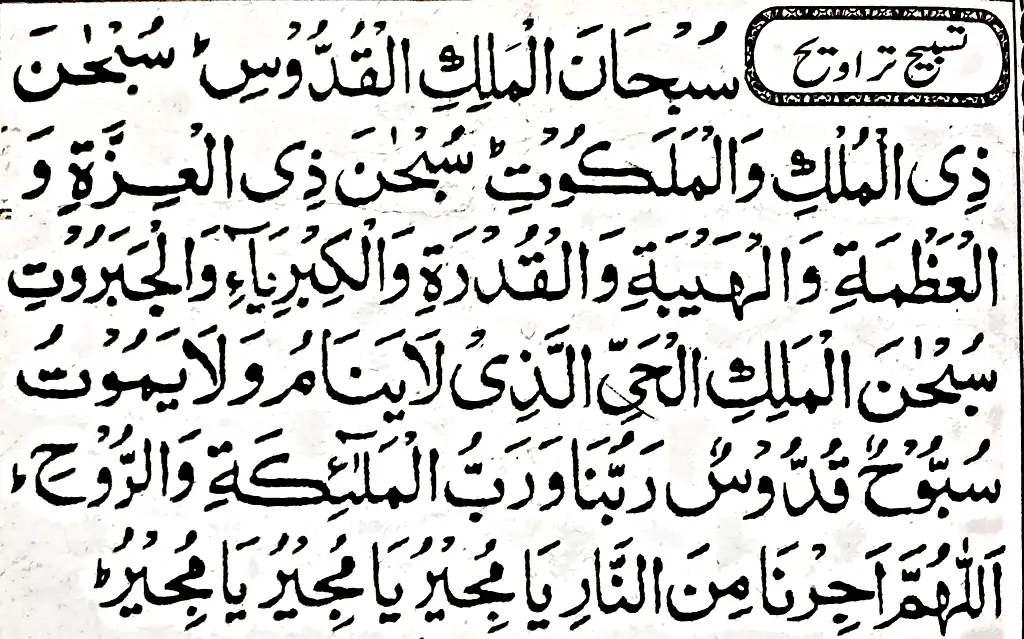 تسبیح تراویح
سُبْحَانَ الْمَلِكِ الْقُدُّوْسِ ؕ سُبْحٰنَ
ذِی الْمُلْكِ وَالْمَلَكُوْتِ ؕ سُبْحٰنَ ذِی الْعِزَّةِ وَ
الْعَظْمَةِ وَالْهَيْبَةِ وَالْقُدْرَةِ وَالْكِبْرِيَآءِ وَالْجَبَرُوْتِ
سُبْحٰنَ الْمَلِكِ الْحَیِّ الَّذِیْ لَا يَنَامُ وَلَا يَمُوْتُ
سُبُّوْحٌ قُدُّوْسٌ رَبُّنَا وَرَبُّ الْمَلٰٓئِكَةِ وَالرُّوْحِ ء
اَللّٰهُمَّ اَجِرْنَا مِنَ النَّارِ يَا مُجِيْرُ يَا مُجِيْرُ يَا مُجِيْرُ ؕ